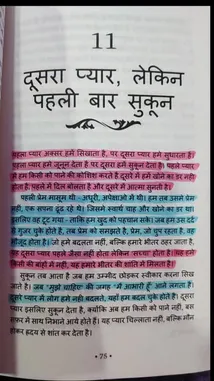 11
दूसरा प्यार, लेकिन
पहली बार सुकून
पहला प्यार अक्सर हमें सिखाता है, पर दूसरा प्यार हमें सुधारता है।
पहला प्यार हमें जुनून देता है पर दूसरा हमें सुकून देता है। पहले प्यार
में हम किसी को पाने की कोशिश करते हैं दूसरे में हमें खोने का डर नहीं
होता है। पहले में दिल बोलता है और दूसरे में आत्मा सुनती है।
पहली प्रेम मासूम थी - अधूरी, अपेक्षाओं में थी। हम तब उसमें प्रेम
नहीं, एक सपना ढूंढ रहे थे। जिसमें स्वार्थ चाह और खोने का डर था।
इसलिए वह टूट गया - ताकि हम खुद को पहचान सकें। जब हम उस दर्द
से गुजर चुके होते हैं, तब प्रेम को समझते है, प्रेम, जो चुप रहता है, वह
मौजूद होता है। जो हमें बदलता नहीं, बल्कि हमारे भीतर ठहर जाता है,
वह दूसरा प्यार पहले जैसा नहीं होता लेकिन 'सच्चा' होता है। वह हमें
किसी की बाहों में नहीं, वह हमारे भीतर की शांति में मिलता है।
सुकून तब आता है जब हम उम्मीद छोड़कर स्वीकार करना सिख
जाते है। जब 'मुझे चाहिए' की जगह "मैं आभारी हूँ" आने लगता है।
दूसरे प्यार में लोग हमें नहीं बदलते, यहाँ हम बदल चुके होते है। दूसरा
प्यार इसलिए सुकून देता है, क्योंकि अब हम किसी को पाने नहीं, बस
सफर में साथ निभाने आये होते हैं। यह प्यार चिल्लाता नहीं, बल्कि मौन
होकर हृदय से शांत कर देता है।
• 75 •